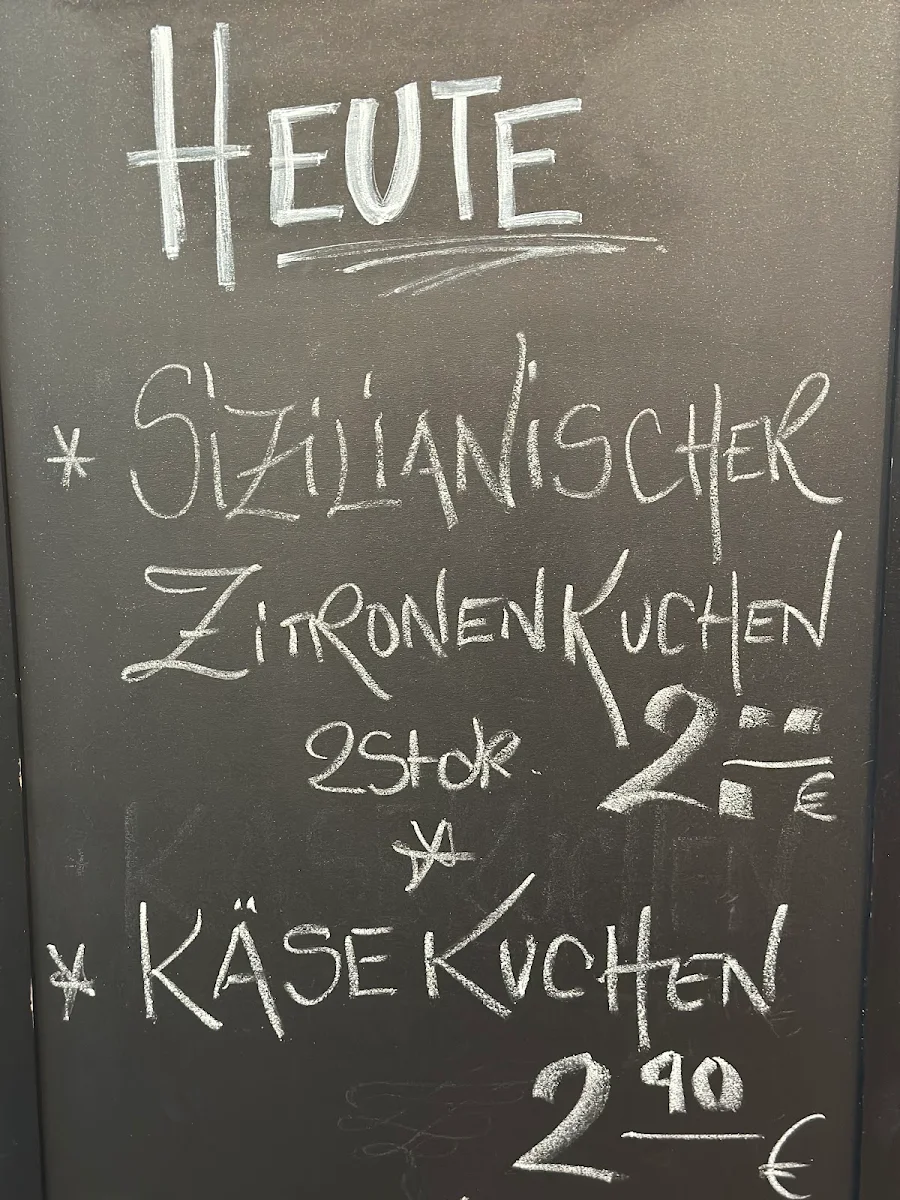 HEUTE
* SiZiLiANiSCHER
ZiTRONENKUCHEN
2Stck.
2.
€
* KÄSEKUCHEN
2 90
€